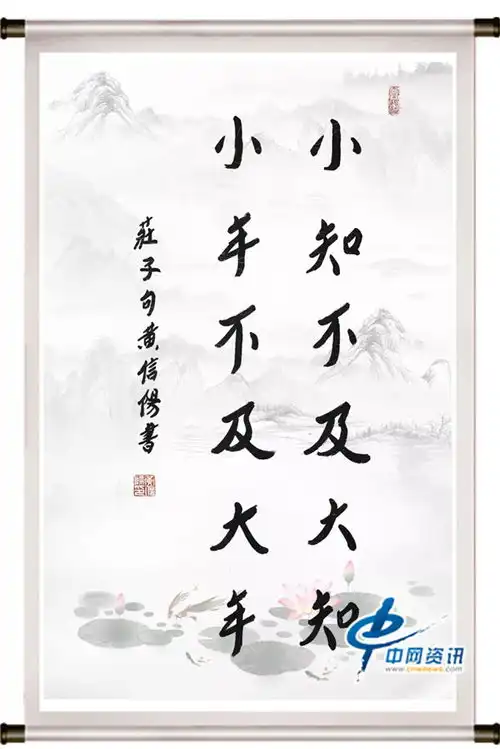 小知不及大知
小年不及大年
莊子句黄信陽書
中网资讯
www.cnwnews.com